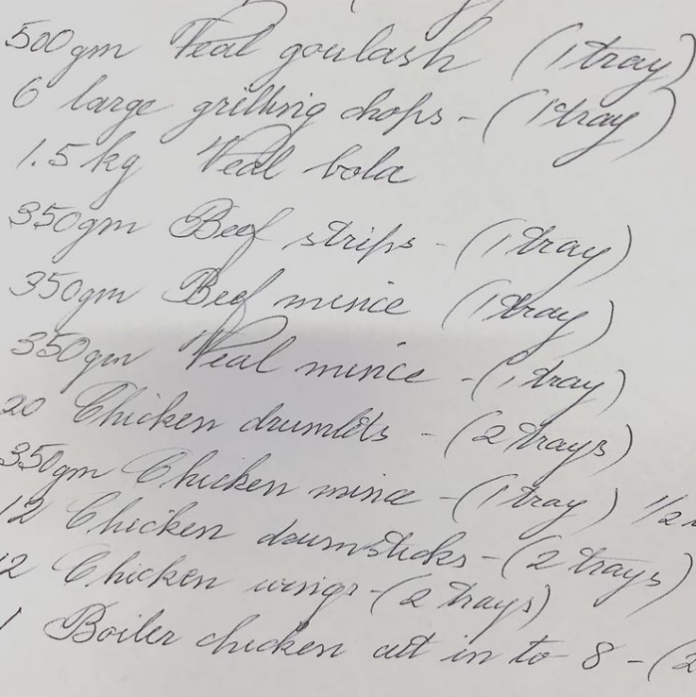 500gm Veal goulash (1 tray)
6 large grilling chops - (1 tray)
1.5kg Veal bola
350gm Beef strips - (1 tray)
350gm Beef mince (1 tray)
350gm Veal mince - (1 tray)
20 Chicken drumlets - (2 trays)
350gm Chicken mince - (1 tray) 1/2
12 Chicken drumsticks - (2 trays)
12 Chicken wings - (2 trays)
1 Boiler chicken cut in to 8 - (2